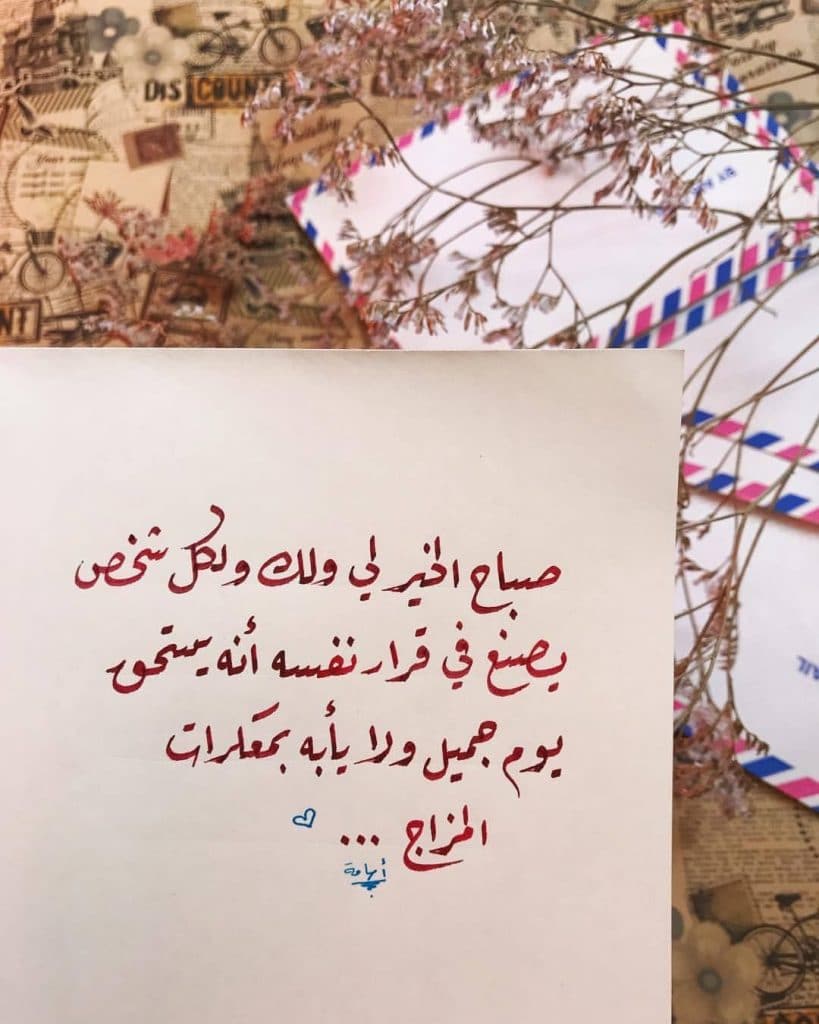 DISCOUNT
صباح الخير لي ولك ولكل شخص
يصنع في قرار نفسه أنه يستحق
يوم جميل ولا يأبه بمعكرات
المزاج ...